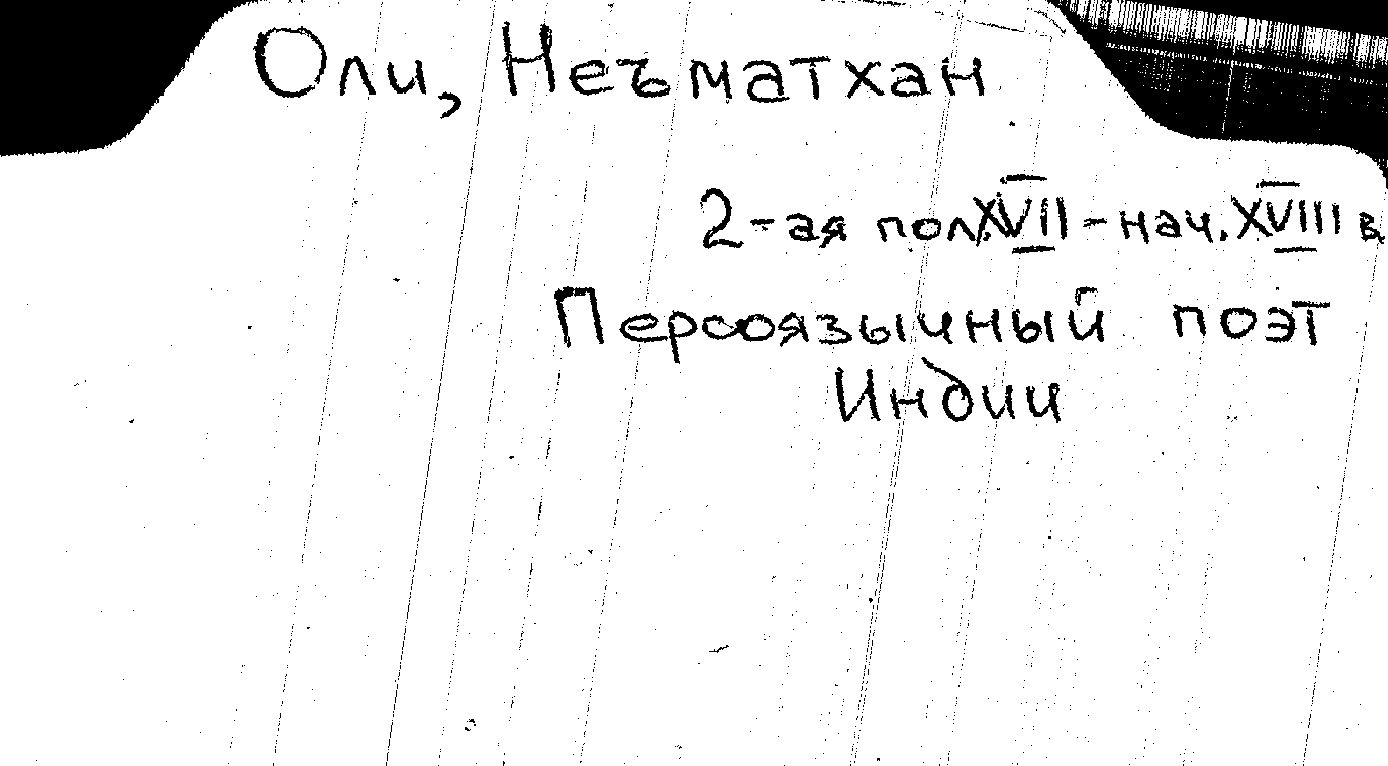 Оли, Неъматхан
2-ая пол. XVII - нач. XVIII в.
Персоязычный поэт
Индии